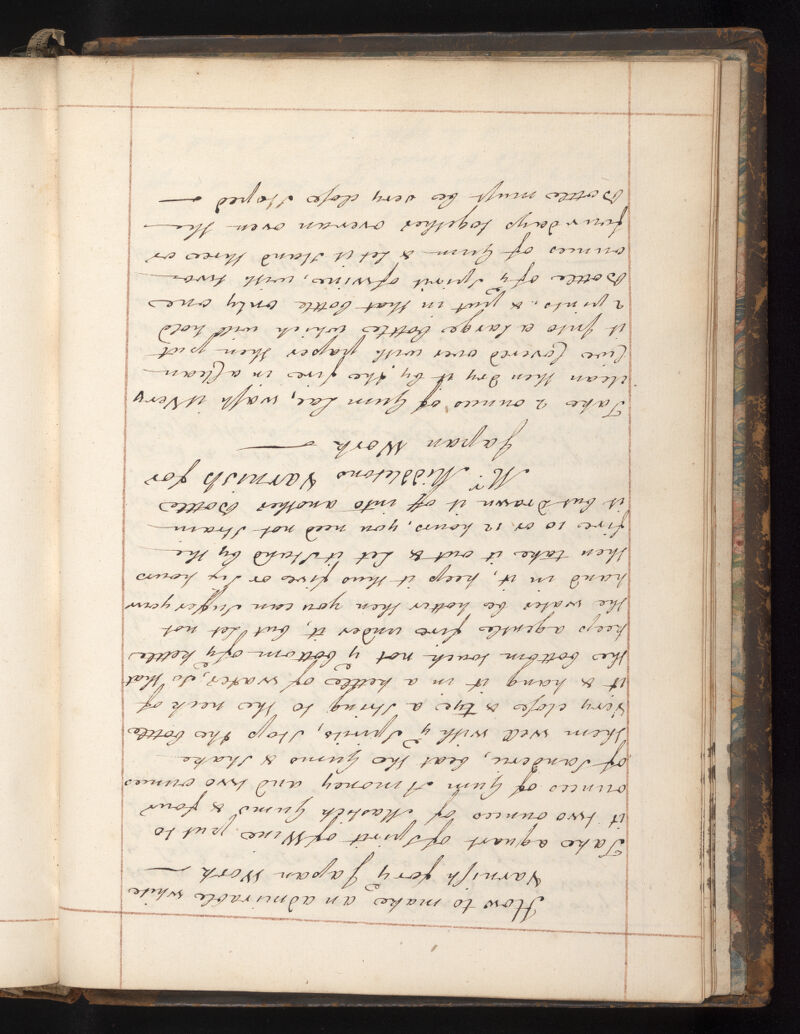 How to make an admirable white
Varnish for ye Japan Work —
Take a quart of Spirit of Wine put to
it two ounces of Mastich Gums & four
ounces of Gum Amoney and two ounces
of Sanderic, beat the Gums & shake
them well with ye Spirits, stop the bottle
very close & tye a string to the neck of
it & hang it in a kettle of water, so that
the bottom touch not ye bottom of ye kettle
keep a gentle fire under it, but let not
the water be hotter then you can suffer your
hand in it, keep it thus five or six hours
then take it out & let it stand by the
fire 10 or 12 hours, you need not strain
it but drawn it off into another Bottle
Mr Middletons Varnish for
Japan Work —
Take 2 ounces of Gum Lac, wash it Very
clean then dry it by the fire in a clean
Covered over with paper then put
it into a large bottle which will hold
2 pints. & put in that bottle only one
Bottle of ye Spirit of wine, with two
ounces of Gum & let it stand three or
four days together over an oven the
Bottle must be very close stoped —